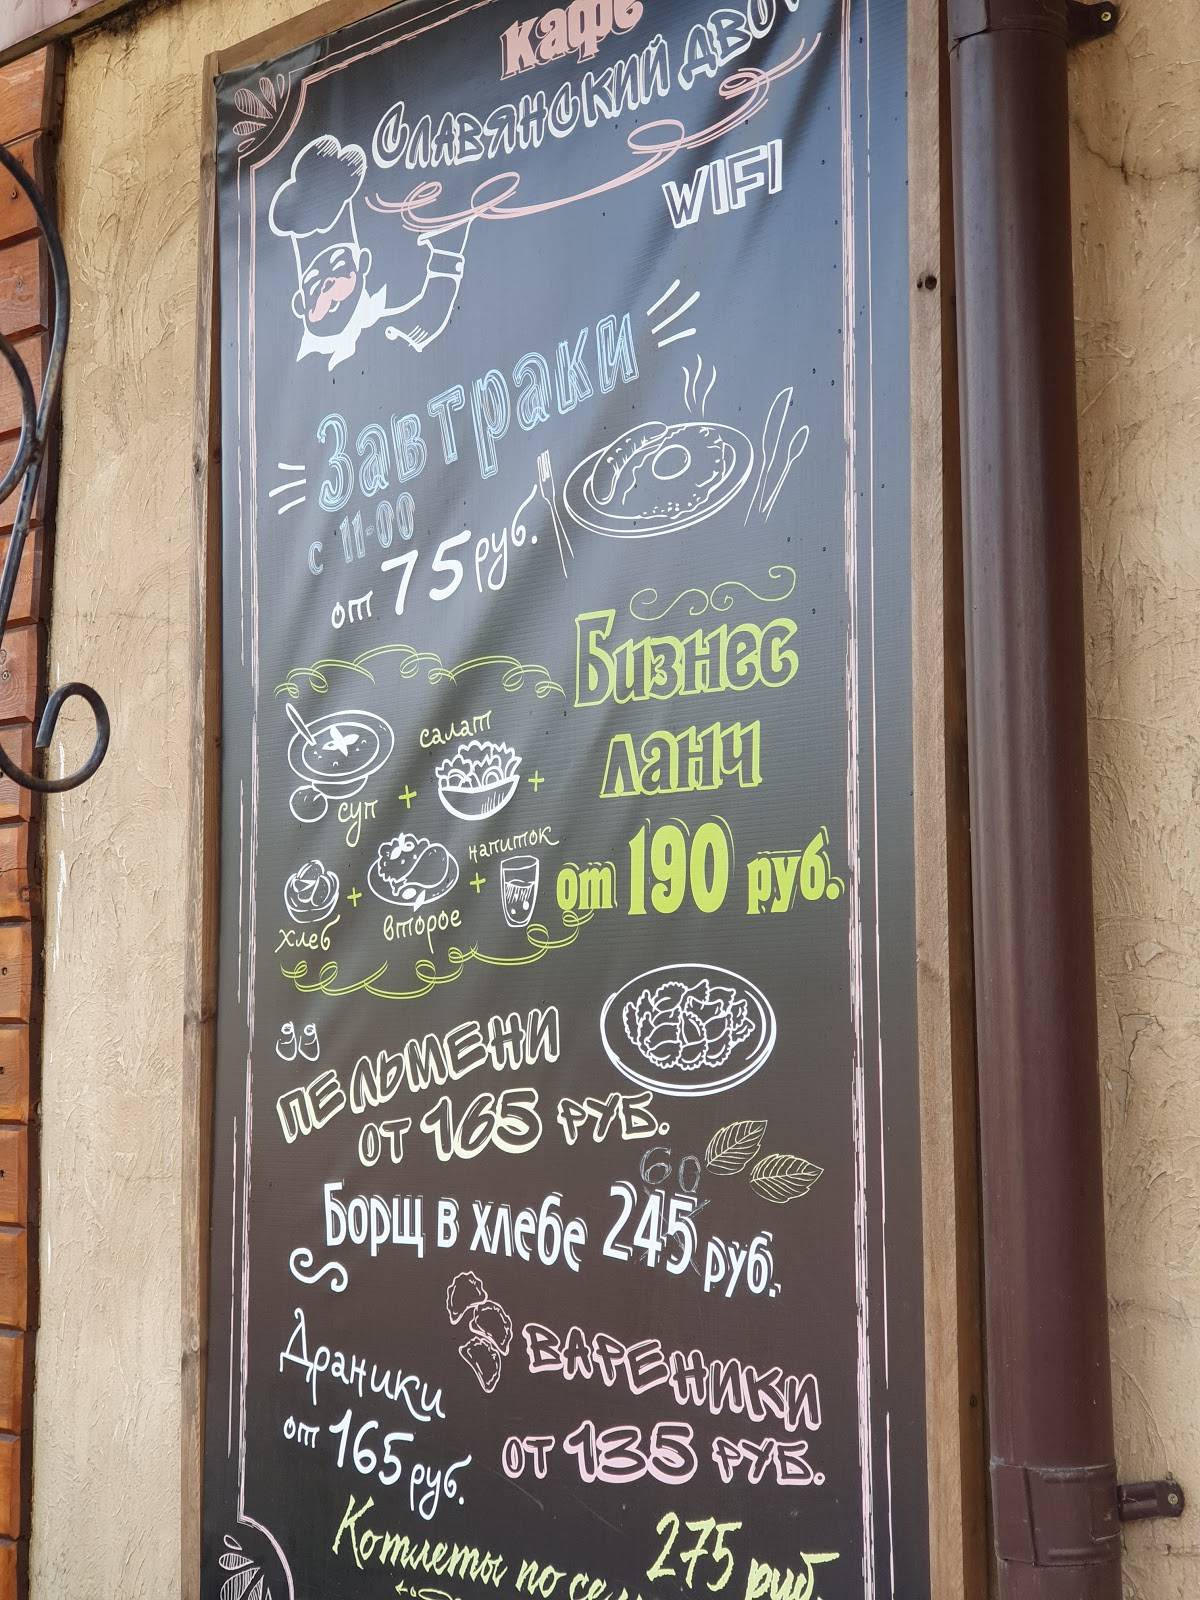 Кафе
Славянский дво
WIFI
Завтраки
с 11-00
от 75 руб.
Бизнес
ланч
от 190 руб.
суп + салат +
хлеб + второе + напиток
Пельмени
от 165 руб.
60
Борщ в хлебе 245 руб.
Драники
от 165 руб.
Вареники
от 135 руб.
Котлеты по 275 руб.